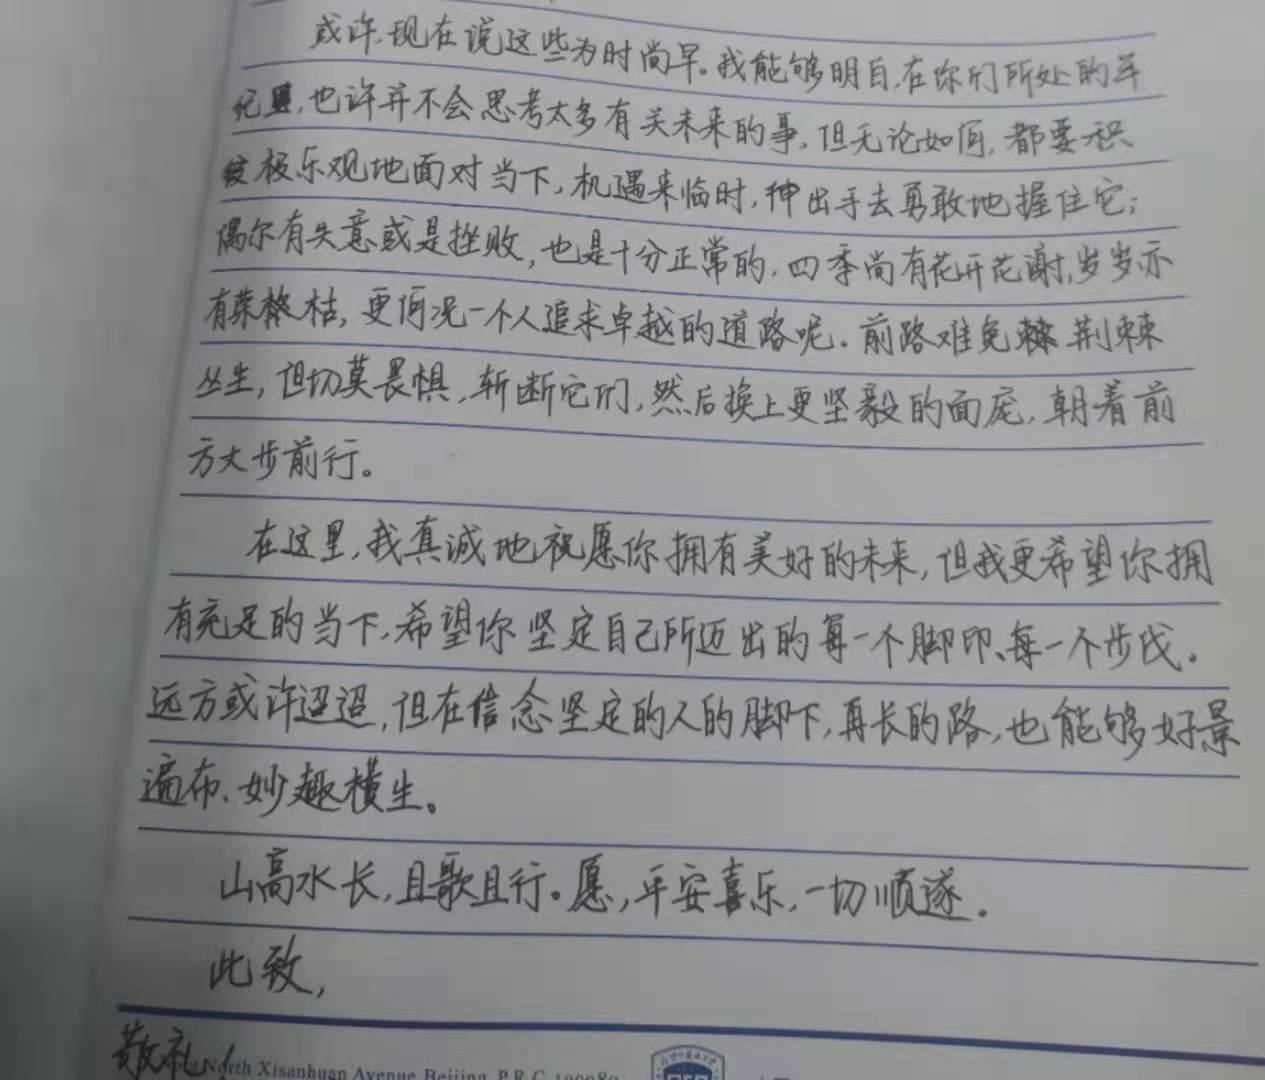 或许,现在说这些为时尚早。我能够明白,在你们所处的年
纪里,也许并不会思考太多有关未来的事,但无论如何,都要积
极乐观地面对当下,机遇来临时,伸出手去勇敢地握住它;
偶尔有失意或是挫败,也是十分正常的,四季尚有花开花谢,岁岁亦
有荣枯,更何况一个人追求卓越的道路呢。前路难免荆棘
丛生,但切莫畏惧,斩断它们,然后换上更坚毅的面庞,朝着前
方大步前行。
在这里,我真诚地祝愿你拥有美好的未来,但我更希望你拥
有充足的当下,希望你坚定自己所迈出的每一个脚印、每一个步伐。
远方或许迢迢,但在信念坚定的人的脚下,再长的路,也能够好景
遍布、妙趣横生。
山高水长,且歌且行。愿,平安喜乐,一切顺遂。
此致,
敬礼!
North Xisanhuan Avenue Beijing, P.R.C. 100089